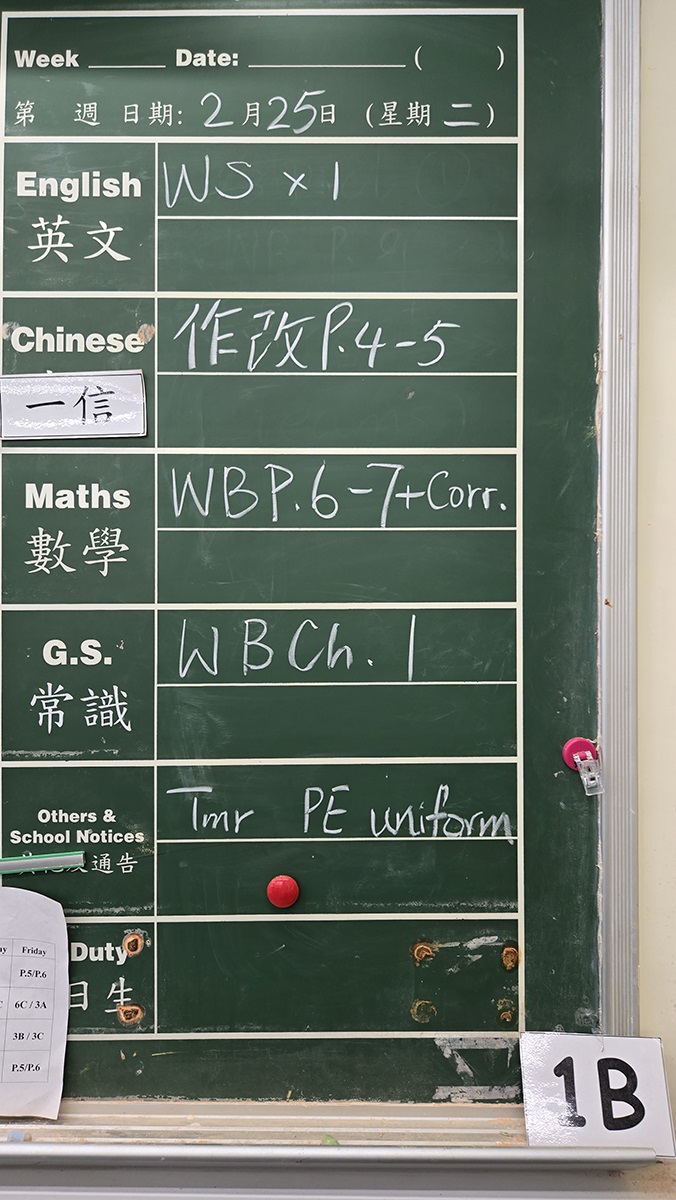 Week ______ Date: ____________ ( )
第 週 日期: 2月25日 (星期 二)
English WS × 1
英文
Chinese 作改P.4-5
一信
Maths WBP.6-7+Corr.
數學
G.S. WBCh. 1
常識
Others & School Notices Tmr PE uniform
通告
Duty
日生
Friday
P.5/P.6
6C / 3A
3B / 3C
P.5/P.6
1B